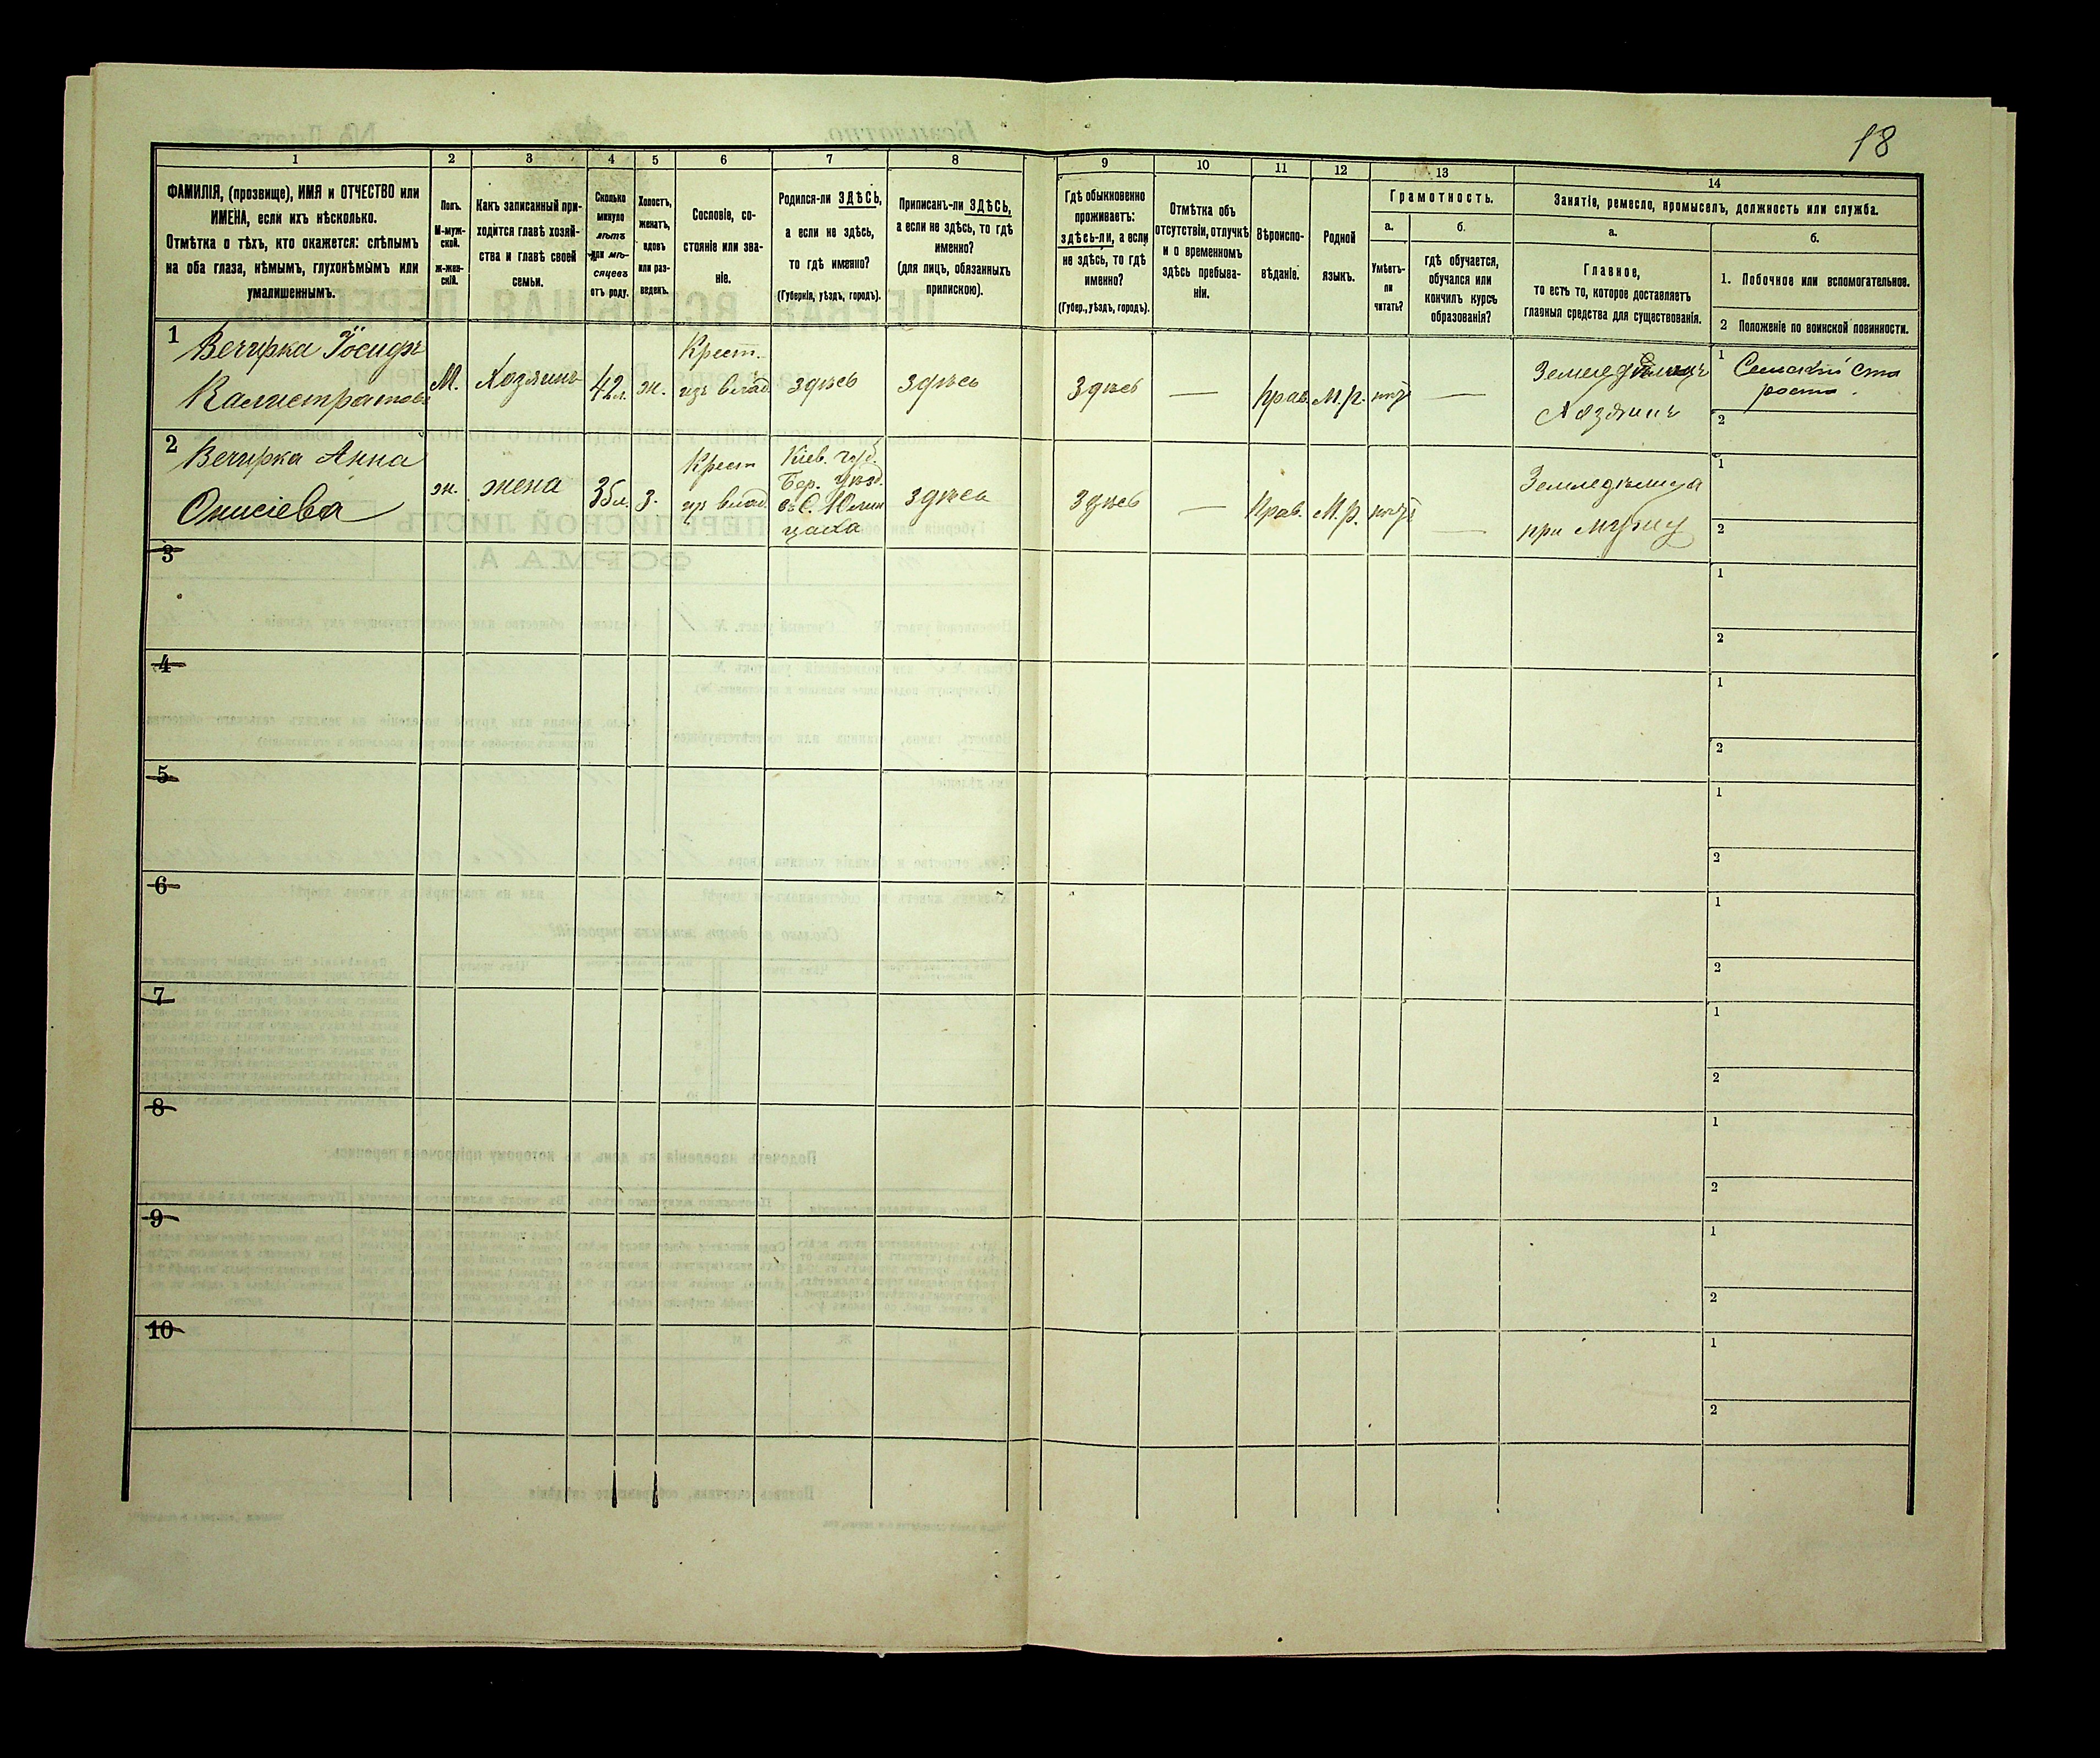 18
1
2
3
4
5
6
7
8
9
10
11
12
13
14
ФАМИЛІЯ, (прозвище), ИМЯ и ОТЧЕСТВО или
ИМЕНА, если ихъ нѣсколько.
Отмѣтка о тѣхъ, кто окажется: слѣпымъ
на оба глаза, нѣмымъ, глухонѣмымъ или
умалишеннымъ.
Полъ.
М-муж-
ской.
ж-жен-
скій.
Какъ записанный при-
ходится главѣ хозяй-
ства и главѣ своей
семьи.
Сколько
минуло
лѣтъ
или мѣ-
сяцевъ
отъ роду.
Холостъ,
женатъ,
вдовъ
или раз-
веденъ.
Сословіе, со-
стояніе или зва-
ніе.
Родился-ли ЗДѢСЬ,
а если не здѣсь,
то гдѣ именно?
(Губернія, уѣздъ, городъ).
Приписанъ-ли ЗДѢСЬ,
а если не здѣсь, то гдѣ
именно?
(для лицъ, обязанныхъ
припискою).
Гдѣ обыкновенно
проживаетъ:
здѣсь-ли, а если
не здѣсь, то гдѣ
именно?
(Губер., уѣздъ, городъ).
Отмѣтка объ
отсутствіи, отлучкѣ
и о временномъ
здѣсь пребыва-
ніи.
Вѣроиспо-
вѣданіе.
Родной
языкъ.
Грамотность.
а.
Умѣетъ-
ли
читать?
б.
гдѣ обучается,
обучался или
кончилъ курсъ
образованія?
Занятіе, ремесло, промыселъ, должность или служба.
а.
Главное,
то есть то, которое доставляетъ
главныя средства для существованія.
б.
1. Побочное или вспомогательное.
2 Положеніе по воинской повинности.
1
Вечирка Іосифъ
Калистратовъ
М.
Хозяинъ
42 л.
ж.
Крест.
изъ влад.
здѣсь
здѣсь
Здѣсь
—
Прав.
М.р.
нѣтъ
—
Земледѣлецъ
Хозяинъ
1
Сельскій ста
роста.
2
2
Вечирка Анна
Онисіева
ж.
жена
з.
Крест
изъ влад.
Кіев. губ.
Бер. уѣзд.
здѣсь
Здѣсь
—
Прав.
М.р.
нѣтъ
—
Земледѣлица
при мужу
1
2
3
1
2
4
1
2
5
1
2
6
1
2
7
1
2
8
1
2
9
1
2
10
1
2